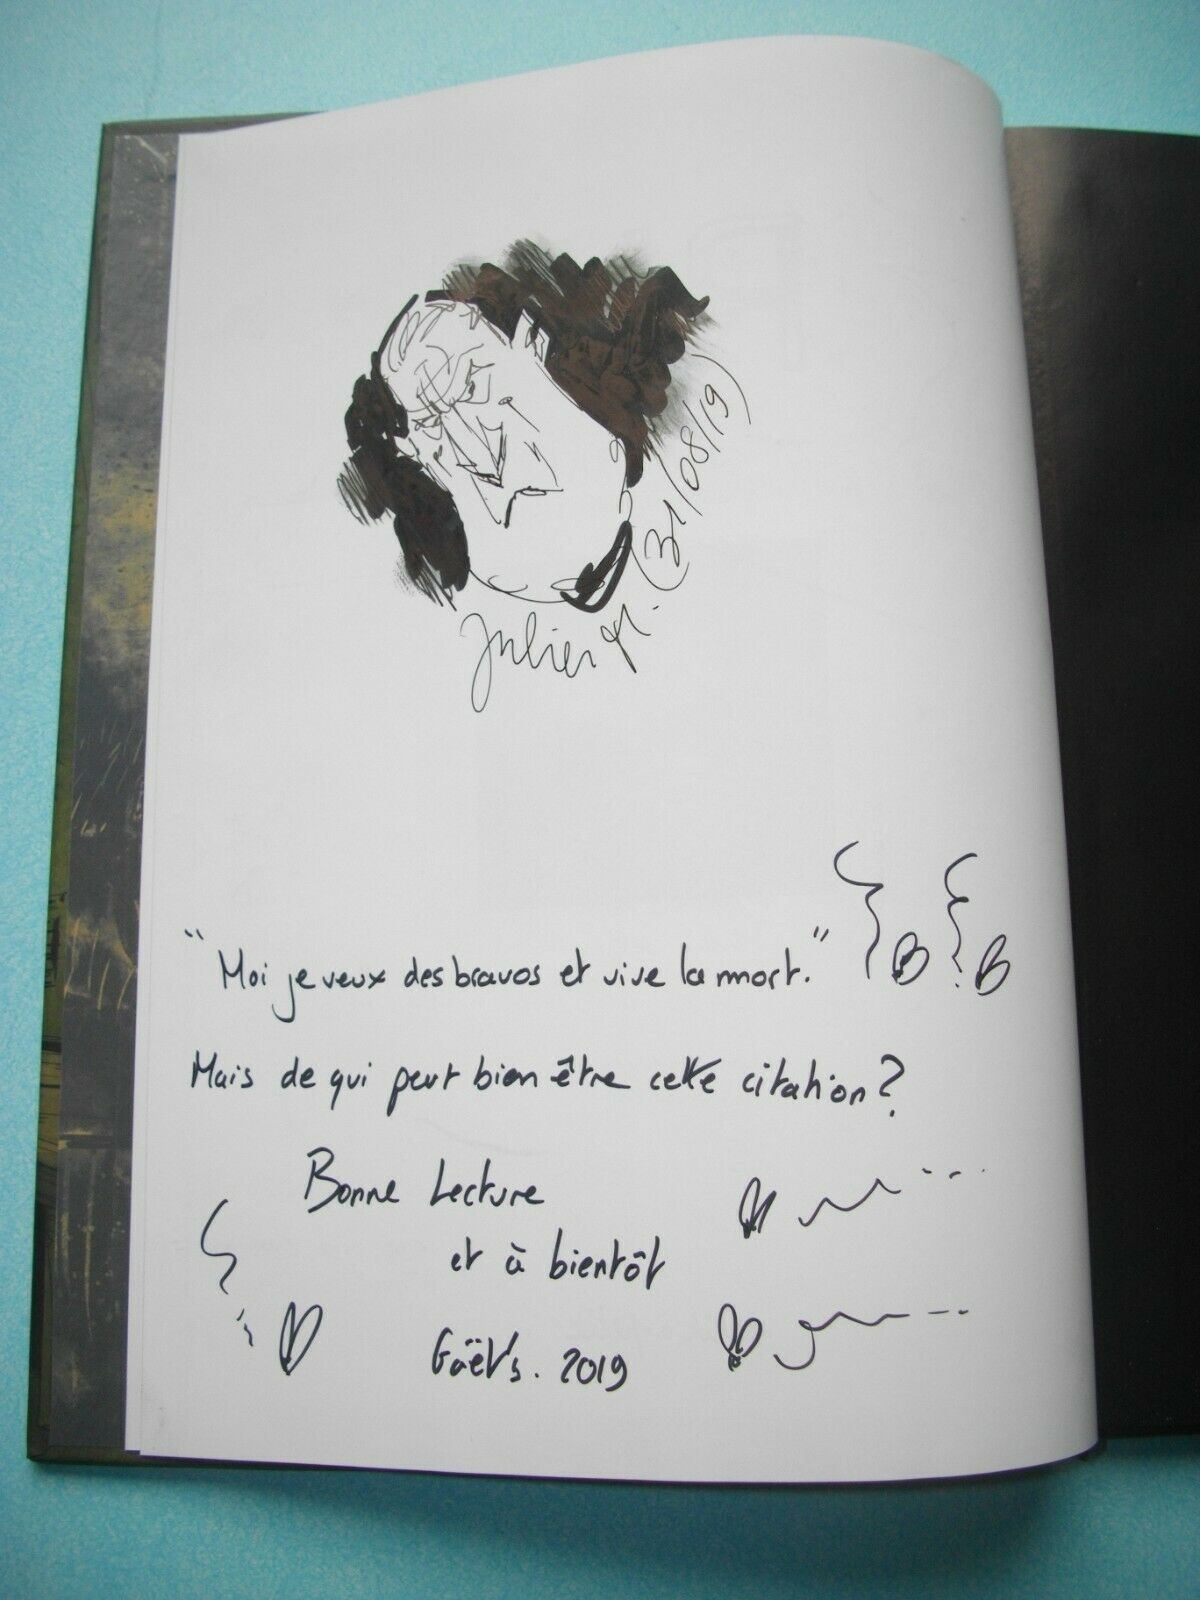 Julien M. (31/08/19)
"Moi je veux des bravos et vive la mort."
Mais de qui peut bien être cette citation?
Bonne Lecture
et à bientôt
Gaël's. 2019